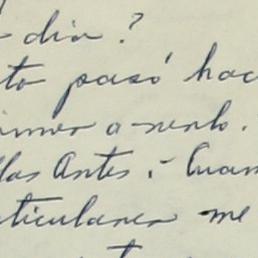 dia?
to pasó hac
a verlo.
llas Antes, - Cuan
ticulares me